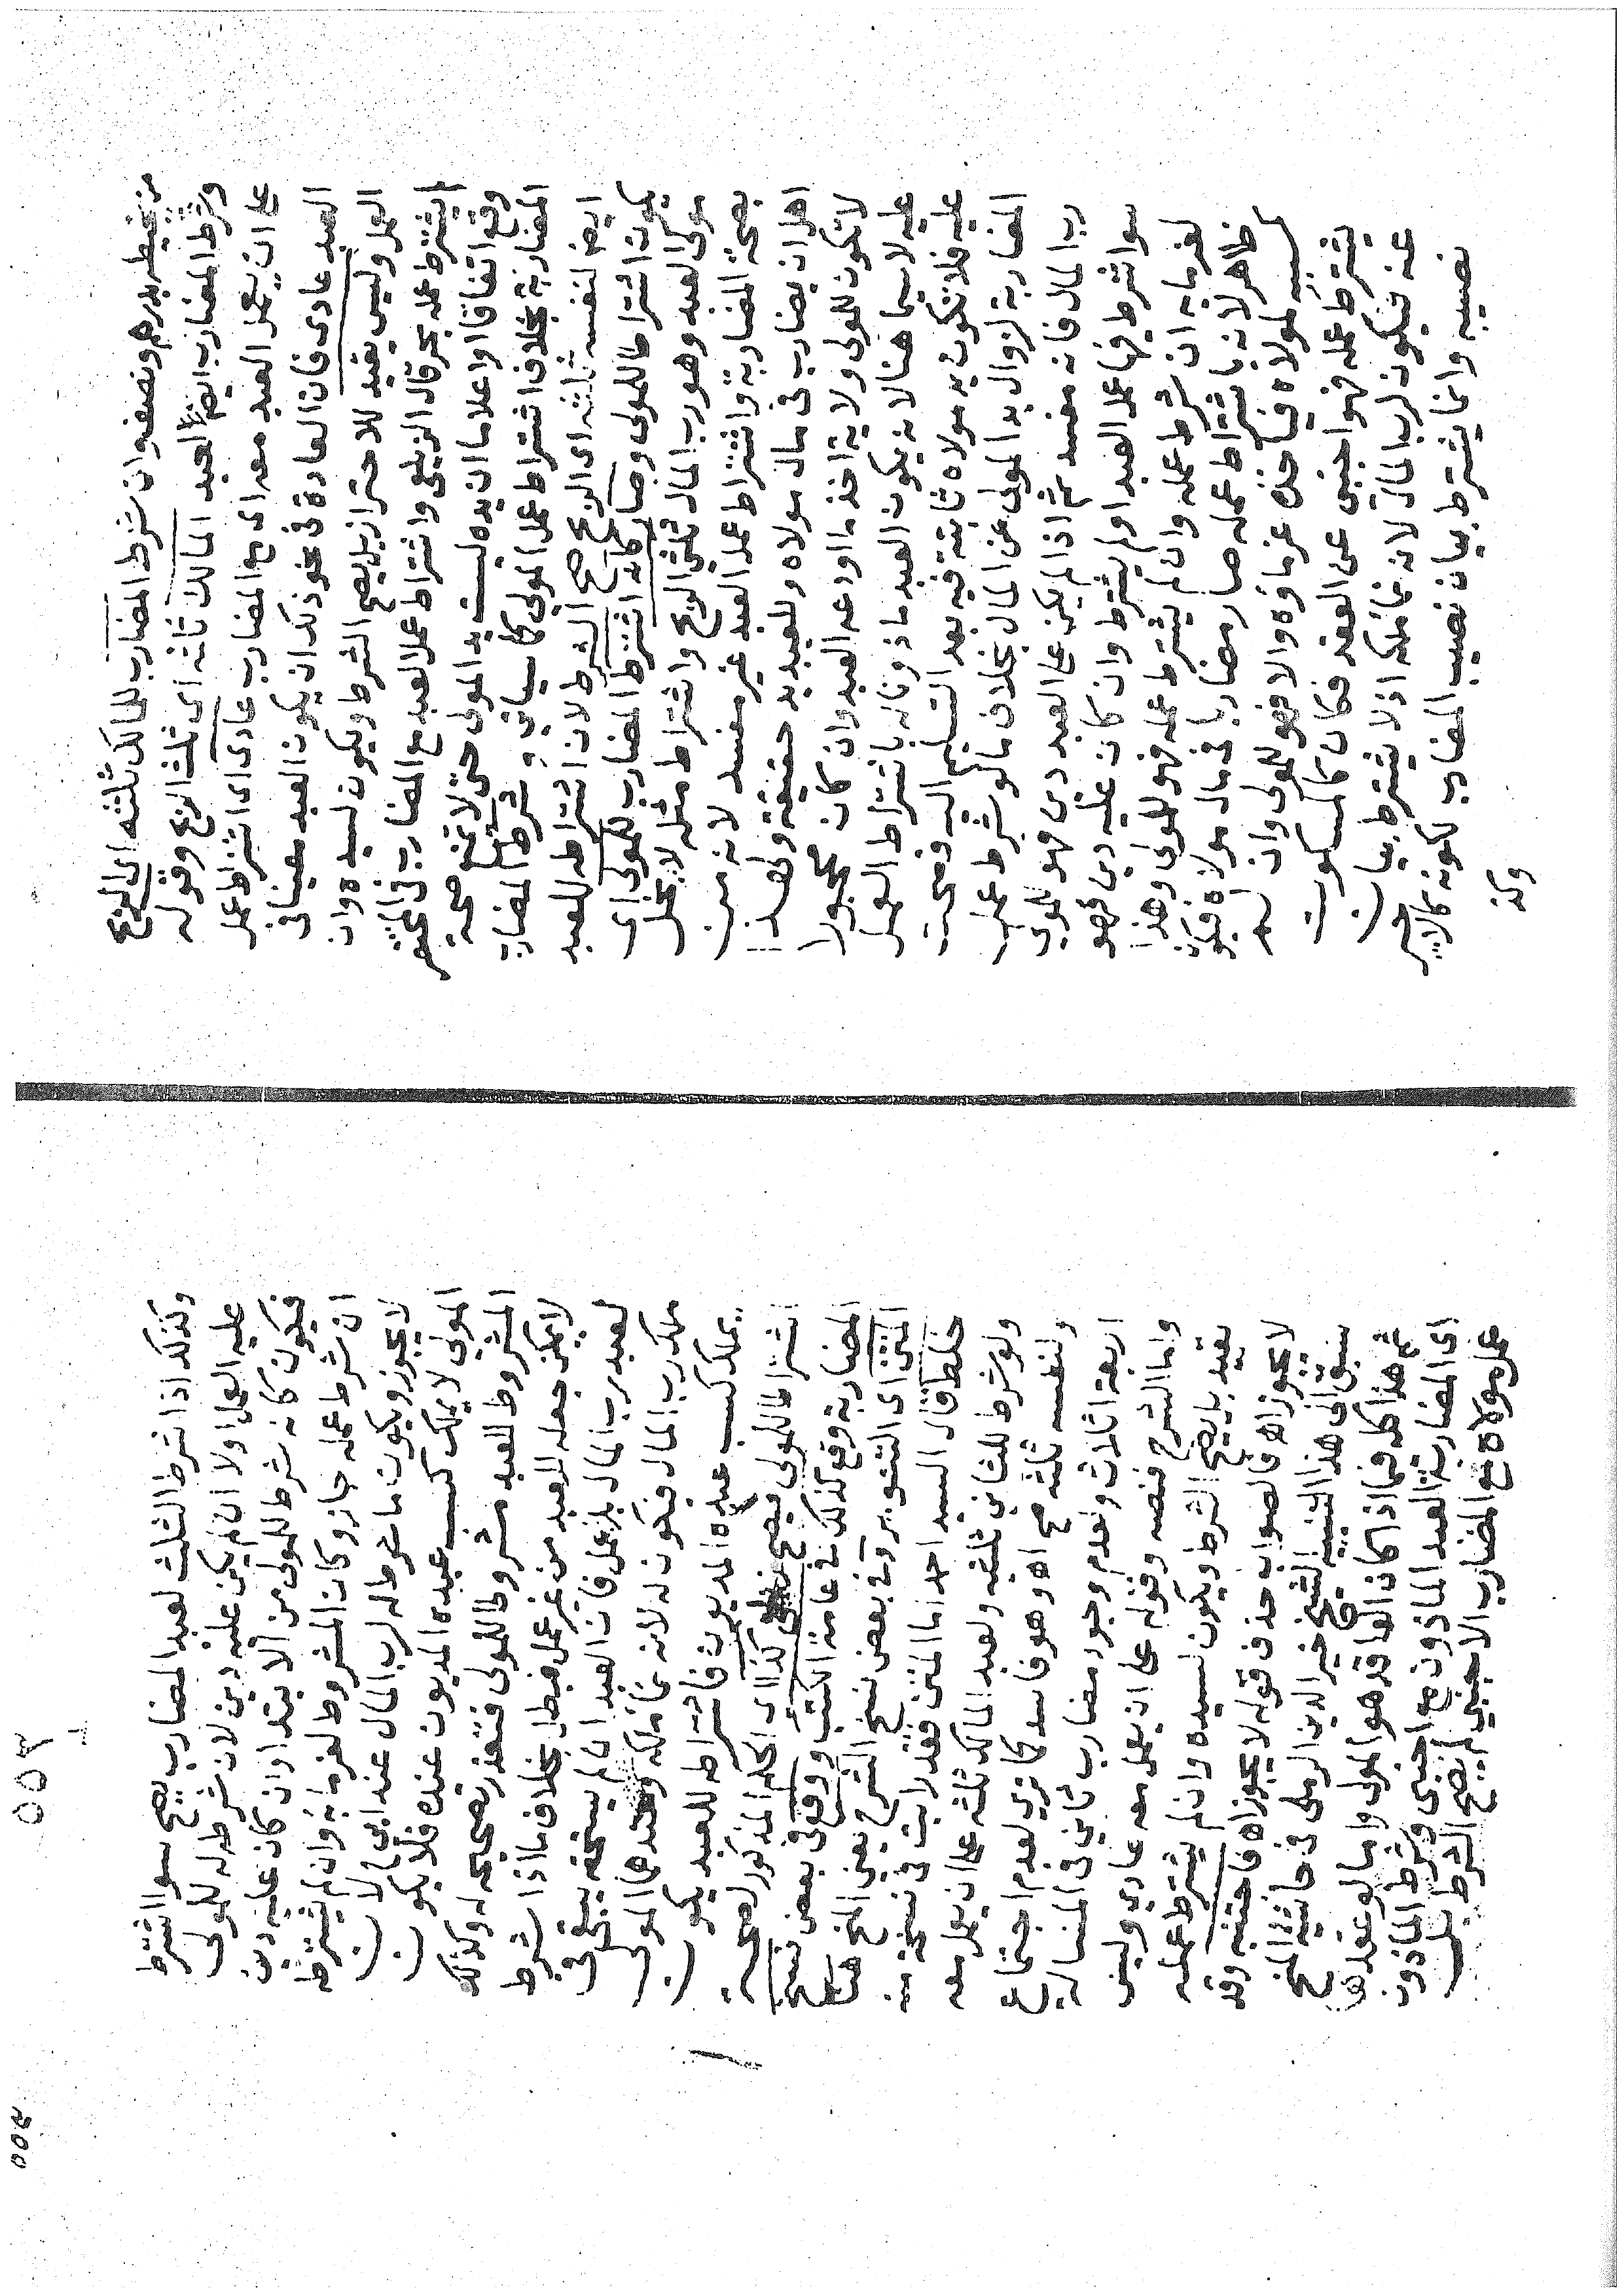 من خيط بدرهم ونصف وان شرط المضارب للمالك ثلثه اى الربح
وشرط المضارب ايضا لعبد المالك ثلثه اى ثلث الربح وقوله
على ان يعمل العبد معه اى مع المضارب عادى اى اشتراط عمل
العبد عادى فان العادة فى نحو ذلك ان يكون العبد معينا فى
العمل وليس بقيد للاحتراز بل يصح الشرط ويكون لسيده وان
لم يشترط عمله بحر قال الزيلعى واشتراط عمل العبد مع المضارب فى المختصر
وقع اتفاقا او اعلاما ان يده ليست يد المولى حتى لا تمنع صحة
المضاربة بخلاف اشتراط عمل المولى كما سيأتى وشرط المضارب
ايضا لنفسه ثلثه اى الربح صح الشرط لان اشتراطه للعبد
يكون اشتراطا للمولى وصار كانه اشترط المضارب للمولى اى
مولى العبد وهو رب المال ثلثى الربح واشتراط مثله لا يخل
بصحة المضاربة واشتراط عمل العبد غير مفسد لانه من
اهل ان يضارب فى مال مولاه وللعبد يد حقيقة ولهذا
لا تكون للمولى ولاية اخذ ما اودعه العبد وان كان محجورا
عليه لا سيما هنا لانه يكون العبد ماذونا له باشتراط العمل
عليه فلا تكون يد مولاه ثابتة فيه بعد التسليم اليه فصحت
المضاربة لزوال يد المولى عن المال بخلاف ما لو شرط عمل
رب المال فانه مفسد ثم اذا لم يكن على العبد دين فهو للمولى
سوا شرط فيها عمل العبد او لم يشترط وان كان عليه دين فهو
لغرمايه ان شرط عمله وان لم يشترط عمله فهو للمولى وهذا
ظاهر لانه باشتراط عمله صار مضاربا فى مال مولاه فيكون
كسبه له فياخذه غرماؤه والا فهو للمولى وان لم
يشترط عمله فهو اجنبى عن العقد فكان كالمسكوت
عنه فيكون لرب المال لانه نماء ملكه اذ لا يشترط بيان
نصيبه وانما يشترط بيان نصيب المضارب لكونه كالاجير
وكذ
وكذلك اذا شرط الثلث لعبد المضارب يصح سوا اشترط
عليه العمل او لا ان لم يكن عليه دين لان شرطه له للمولى
فيكون كانه شرط للمولى من الابتدا وان كان عليه دين
ان شرط عمله جاز وكان المشروط لغرمايه وان لم يشترطه
لا يجوز ويكون ما شرط له لرب المال عند ابى ح لان
المولى لا يملك كسب عبده المديون عنده فلا يكون
المشروط للعبد مشروطا للمولى فتعذر تصحيحه له وكذلك
لا يمكن جعله للعبد من غير عمل فبطل بخلاف ما اذا شرط
لعبد رب المال بلا عمل فان العبد ان لم يستحقه يبقى على
ملك رب المال فيكون له لانه نماء ملكه وعندهما المولى
يملك كسب عبده المديون فاشتراطه للعبد يكون
اشتراطا للمولى فيصح زيلعى كذا اى الحكم المذكور لصحة
المضاربة وقع كذلك فى عامة الكتب ووقع فى بعض نسخ
المتن اى التنوير وفى بعض نسخ الشرح يعنى المنح هنا
خلط قال السيد احد اما المتن فقد رايت فى نسخة منه
ولو شرط للثانى ثلثيه ولعبد المالك ثلثه على ان يعمل معه
ولنفسه ثلثه صح اه وهو فاسد كما ترى لعدم اجتماع
اربعة اثلاث ولعدم وجود مضارب ثانى فى المسالة
واما الشرح فنصه وقوله على ان يعمل معه عادى وليس
بقيد بل يصح الشرط ويكون لسيده وان لم يشترط عمله
لا يجوز اه قال لصواب حذف قوله لا يجوز اه فاجتنبه وقد
سبق الى هذا التنبيه الشيخ خير الدين الرملى فى حاشية المنح
ثم هذا كله فيما اذا كان العاقد هو المولى واما لو عقدها
اى المضاربة العبد الماذون مع اجنبى وشرط الماذون
عمل مولاه مع المضارب الاجنبى لم يصح الشرط
٥٥٣